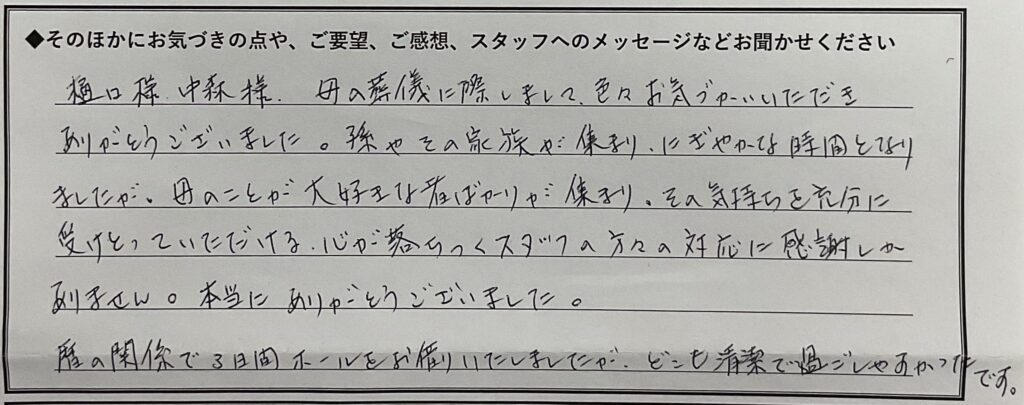 ◆そのほかにお気づきの点や、ご要望、ご感想、スタッフへのメッセージなどお聞かせください
樋口様、中森様、母の葬儀に際しまして、色々お気づかいいただき
ありがとうございました。孫やその家族が集まり、にぎやかな時間となり
ましたが、母のことが大好きな者ばかりが集まり、その気持ちを充分に
受けとっていただける、心が落ちつくスタッフの方々の対応に感謝しか
ありません。本当にありがとうございました。
暦の関係で3日間ホールをお借りいたしましたが、どこも清潔で過ごしやすかったです。